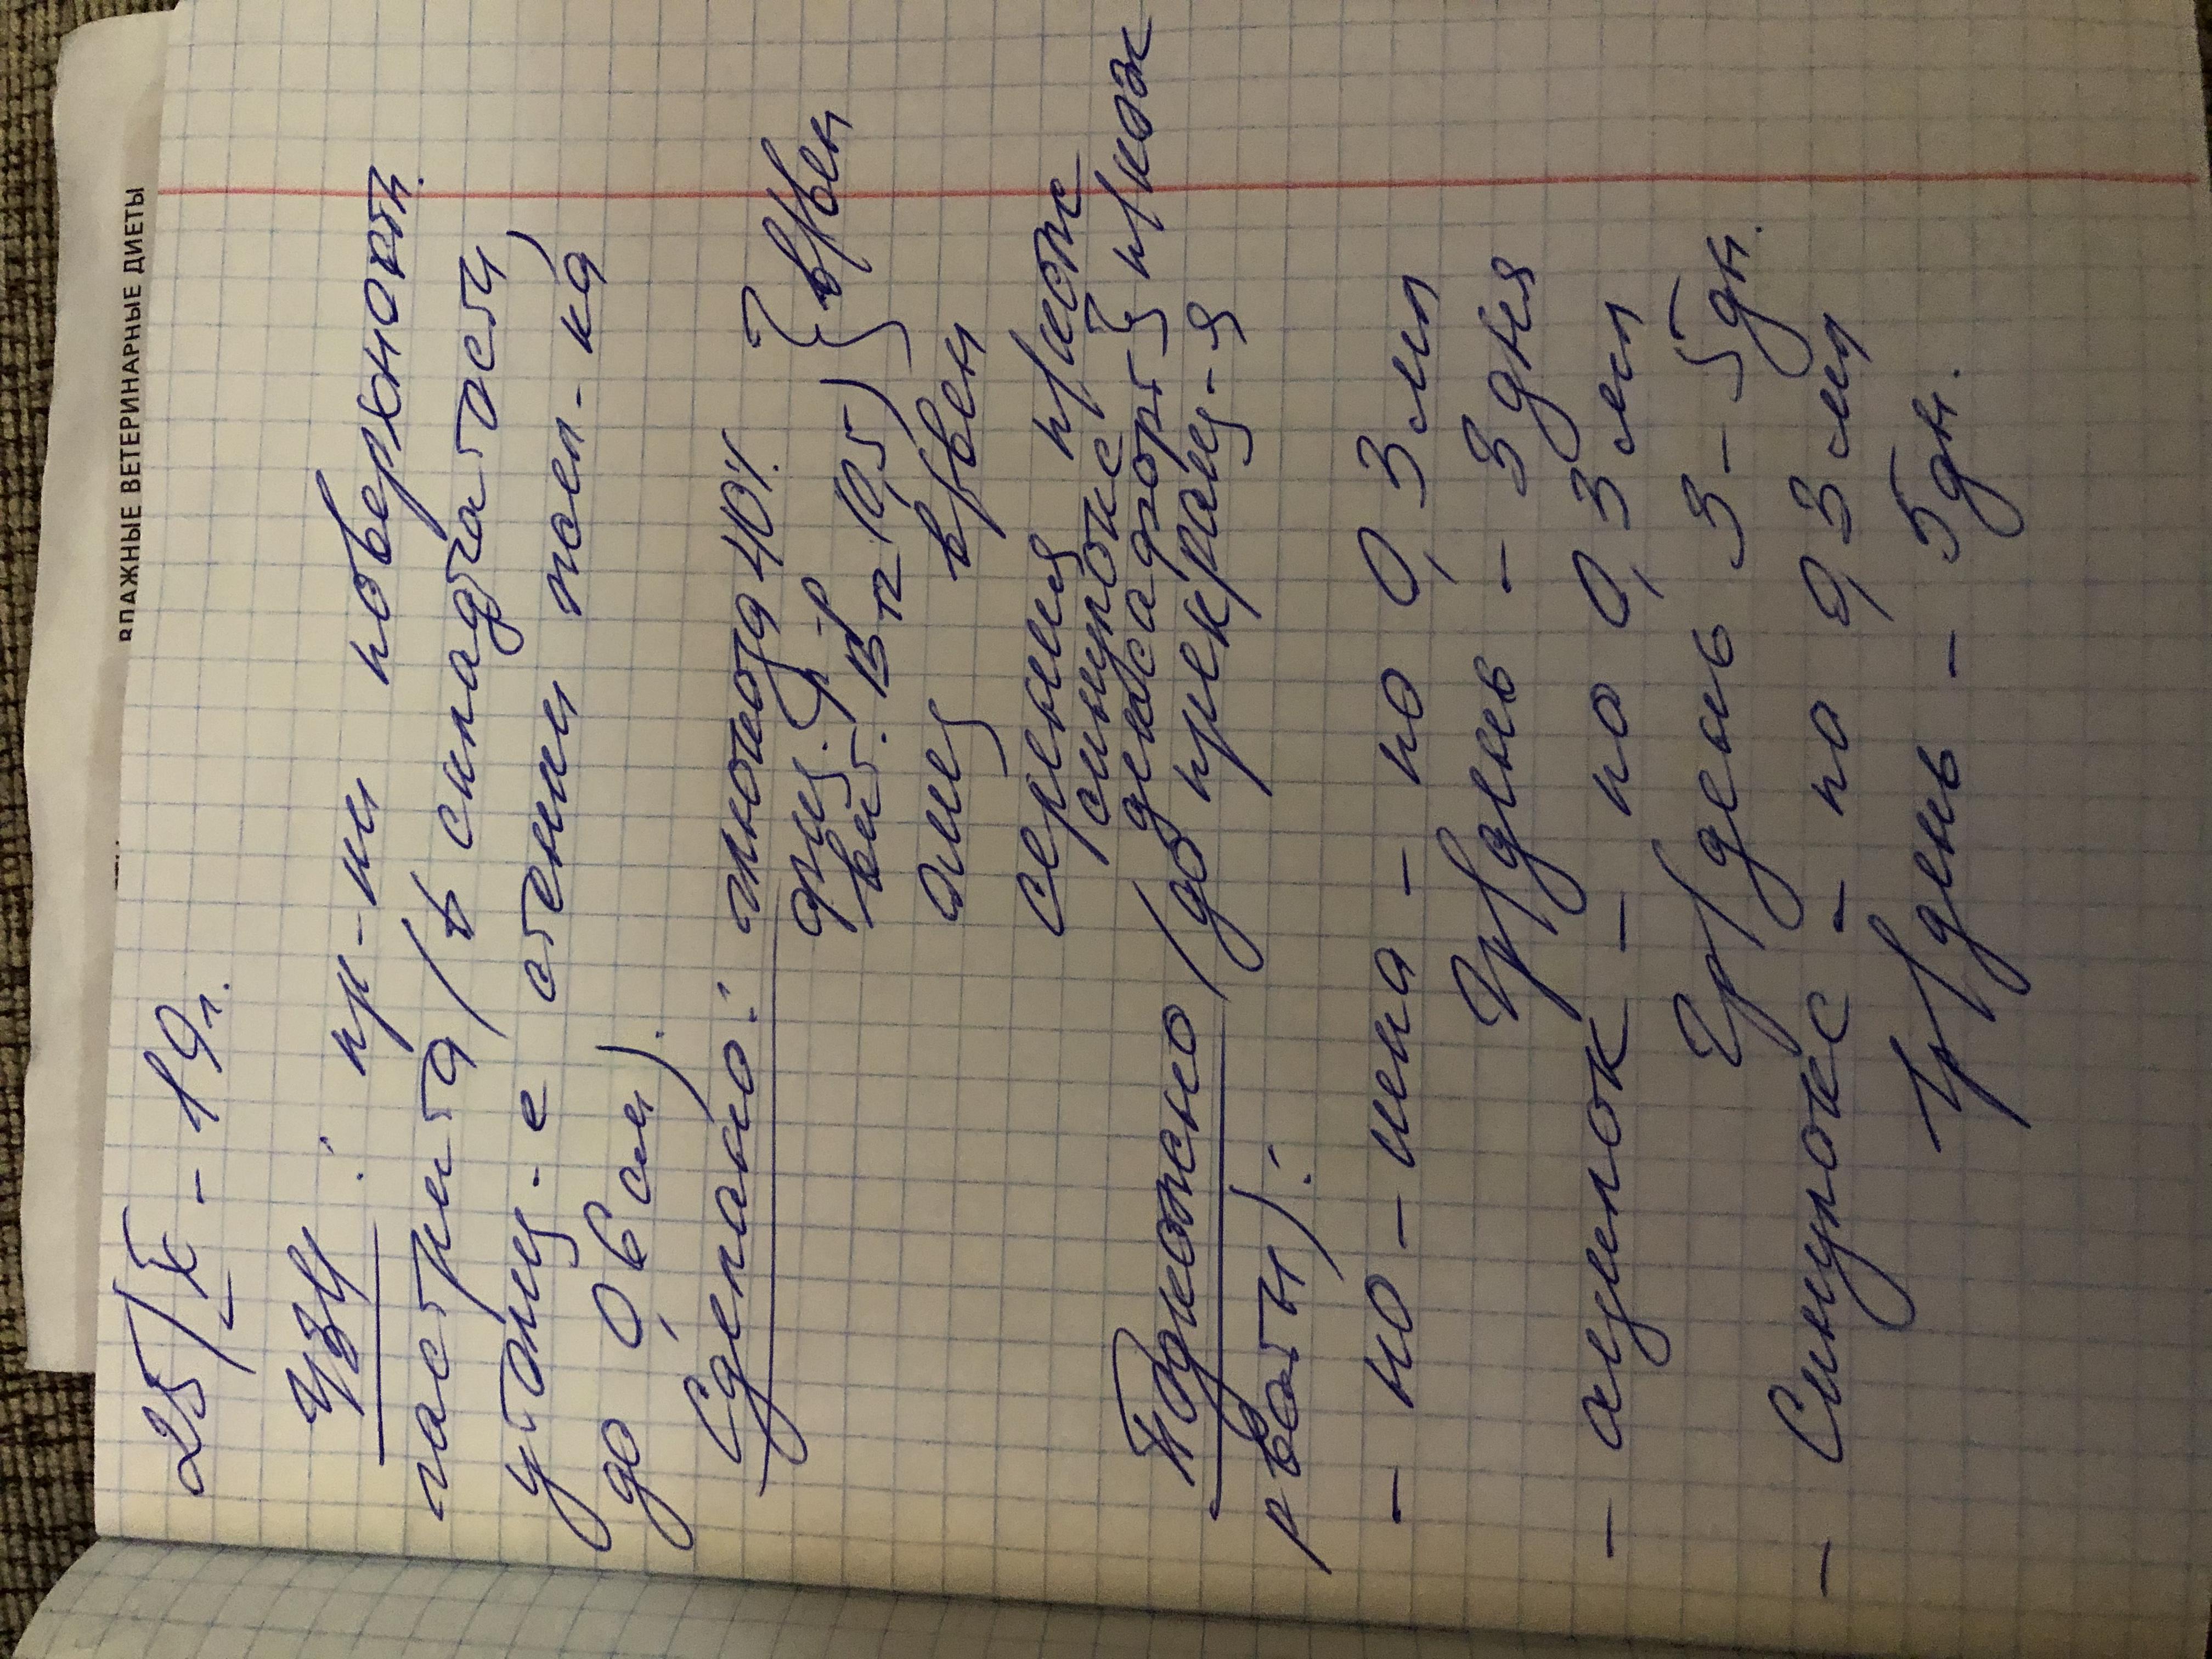 ВЛАЖНЫЕ ВЕТЕРИНАРНЫЕ ДИЕТЫ
25/IX - 19г.
УЗИ : пр-ки поверхностн.
гастрита (в складчатости
утолщ-е стенки жел-ка)
до 0,6 см).
Сделано: глюкоза 40%
физ. р-р } в/вен
вит. B12 (0,5)
омез в/вен
серения п/кож
синулокс
дексафорт } п/кож
Подкожно (до прекращ-я
рвоты):
- но-шпа - по 0,3 мл
1р/день - 3 дня
- ацилок - по 0,3 мл
1р/день 3-5 дн.
- Синулокс - по 0,3 мл
1р/день - 5 дн.